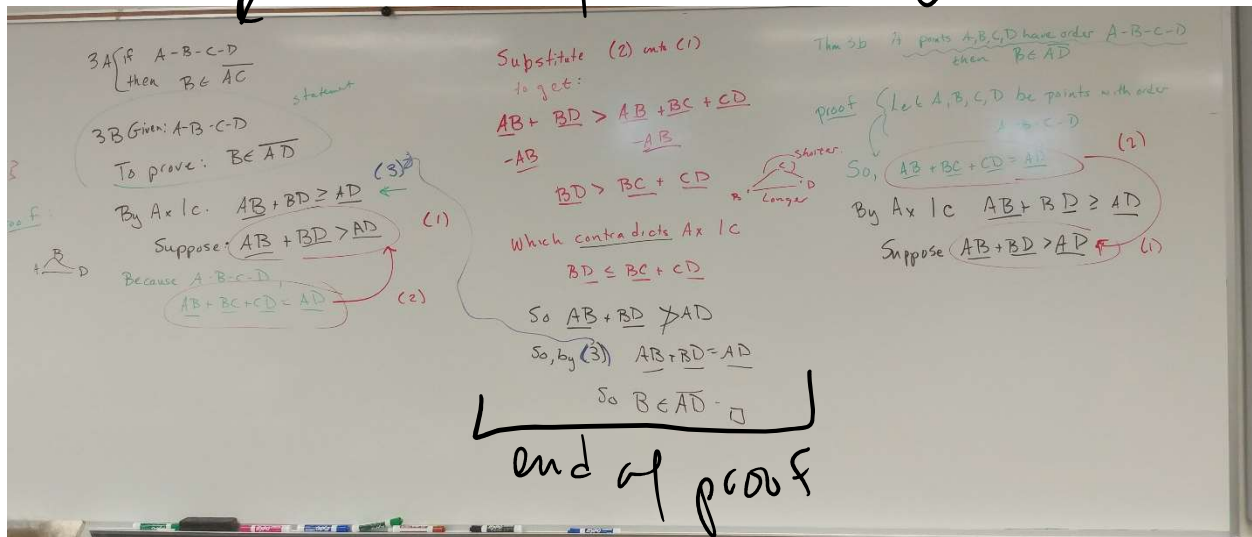 3A { if A-B-C-D
then B ∈ AC
3B Given: A-B-C-D
statement
To prove: B ∈ AD
(3)
By Ax 1c. AB + BD ≥ AD
Suppose: AB + BD > AD (1)
Because A-B-C-D,
AB + BC + CD = AD (2)
B
A D
Substitute (2) into (1)
to get:
AB + BD > AB + BC + CD
-AB -AB
BD > BC + CD
Shorter
C
B D
Longer
Which contradicts Ax 1c
BD ≤ BC + CD
So AB + BD ≯ AD
So, by (3) AB + BD = AD
So B ∈ AD. □
end of proof
Thm 3b if points A,B,C,D have order A-B-C-D
then B ∈ AD
proof { Let A, B, C, D be points with order
A-B-C-D
So, AB + BC + CD = AD (2)
By Ax 1c AB + BD ≥ AD
Suppose AB + BD > AD (1)